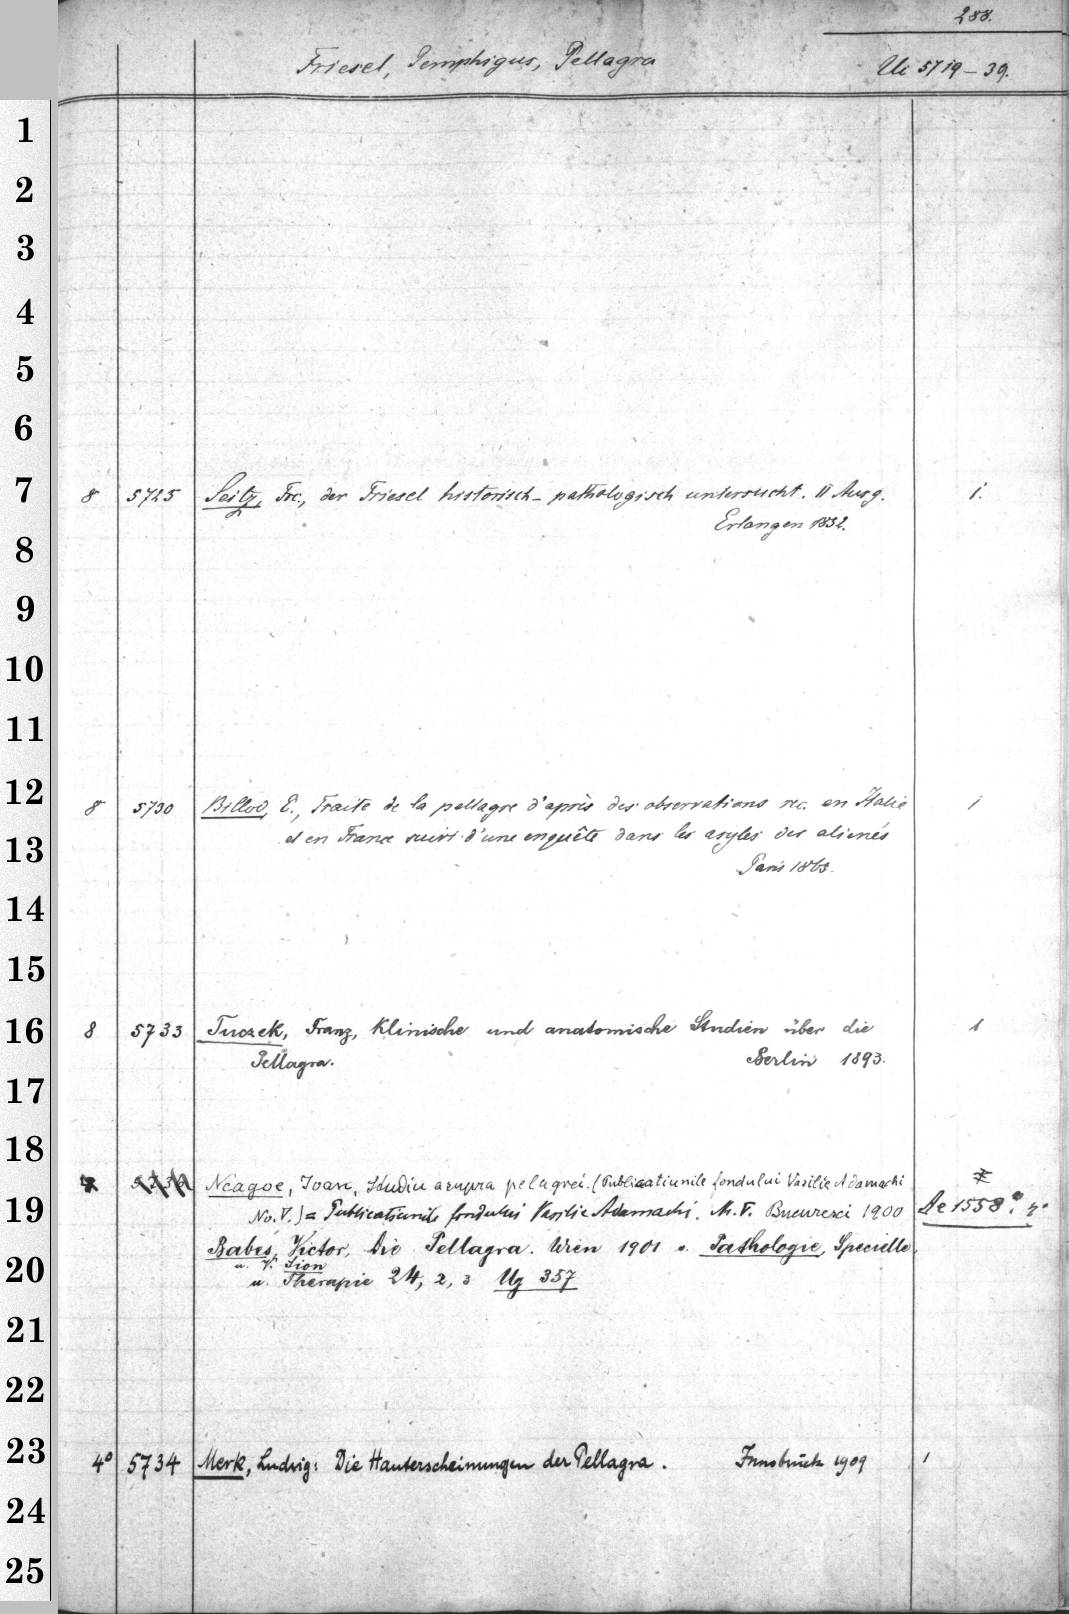 288.
Friesel, Pemphigus, Pellagra Uc 5719-39.
1
2
3
4
5
6
7 8 5725 Seitz, Frc., der Friesel historisch-pathologisch untersucht. II Ausg. 1.
Erlangen 1832.
8
9
10
11
12 8 5730 Billod, E., Traite de la pellagre d'après des observations rec. en Italie 1
13 et en France suivi d'une enquête dans les asyles des alienés
Paris 1865.
14
15
16 8 5733 Tuczek, Franz, Klinische und anatomische Studien über die 1
Pellagra. Berlin 1893.
17
18
Neagoe, Ioan, Studiu asupra pelagrei. (Publicatiunile fondului Vasilie Adamachi
19 No. V.) = Publicatiunile fondului Vasilie Adamachi. No. V. Bucuresci 1900 Ae 1558 4°
Babes, Victor, Die Pellagra. Wien 1901 s. Pathologie, Specielle,
u. V. Sion
20 u. Therapie 24, 2, 3 Ug 357
21
22
23 4° 5734 Merk, Ludwig: Die Hauterscheinungen der Pellagra. Innsbruck 1909 1
24
25